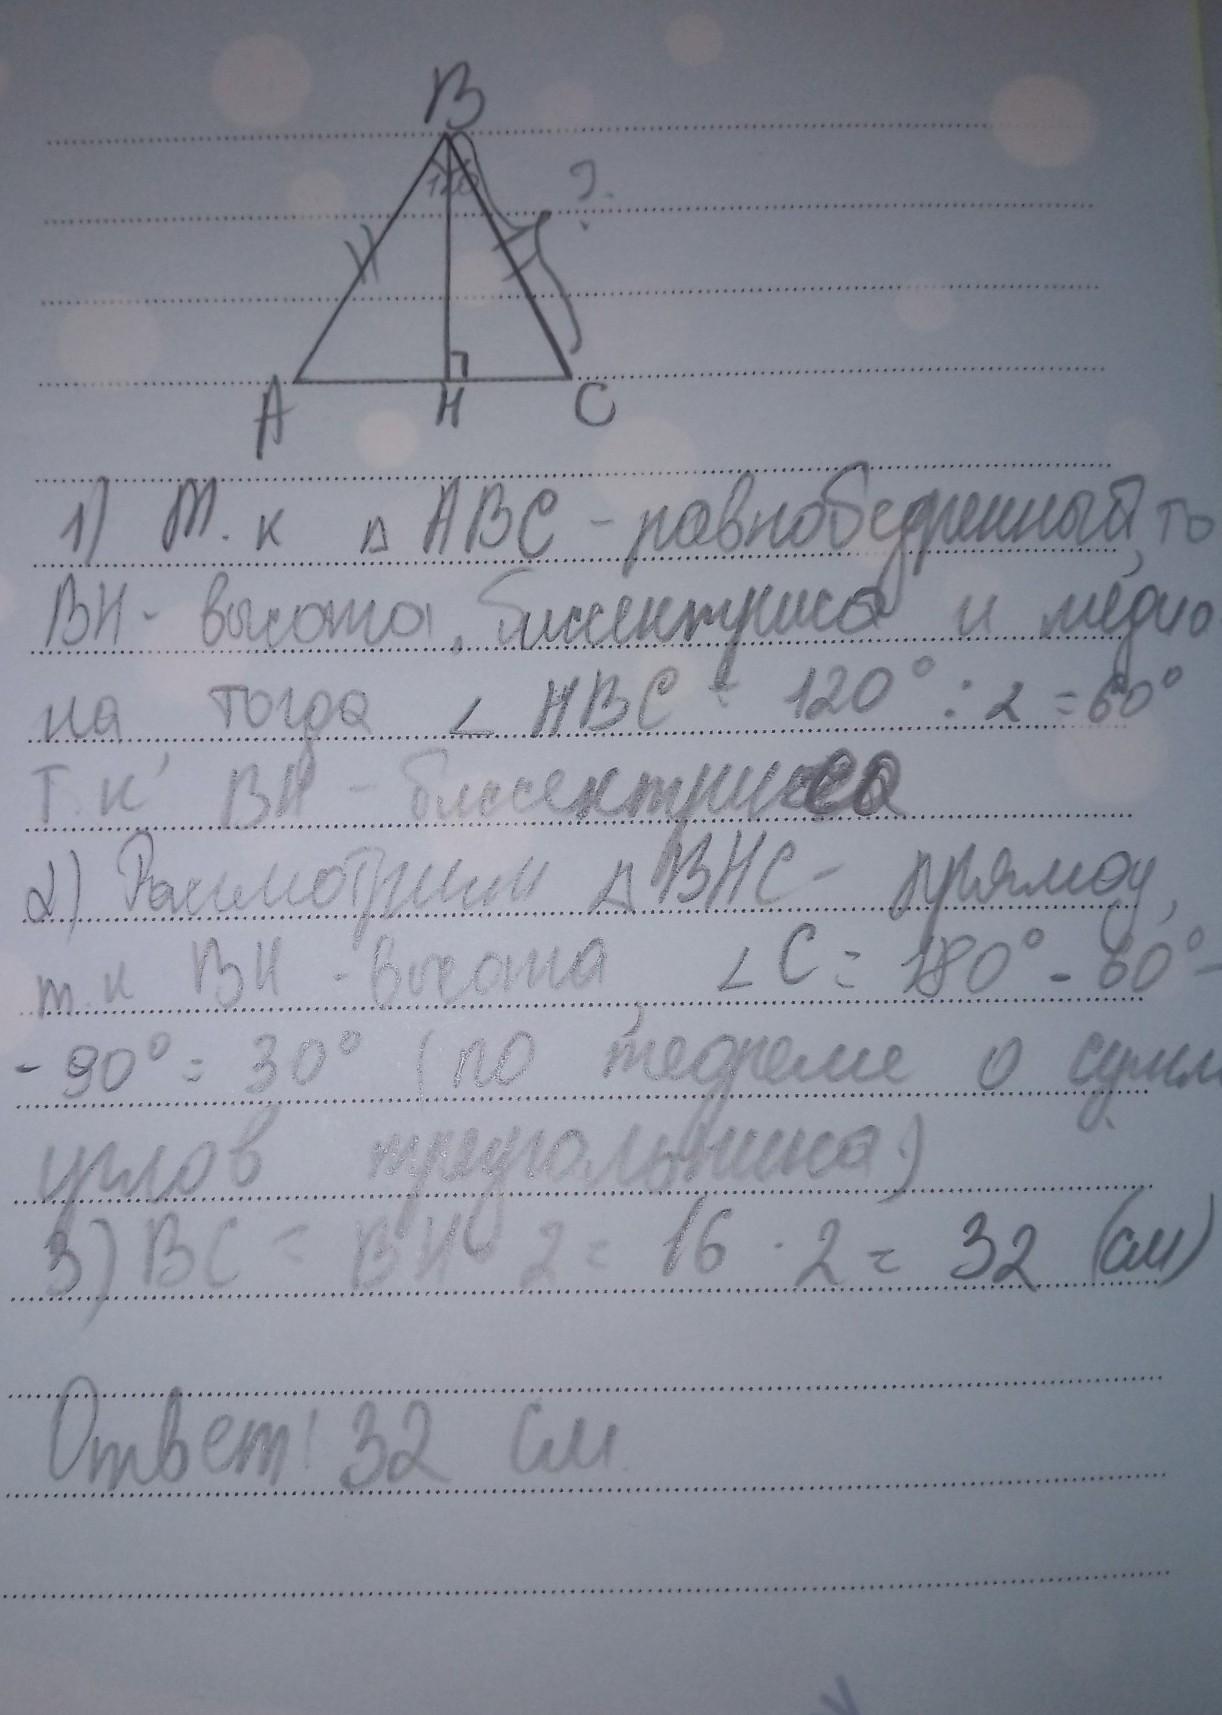 B
120
?
A H C
1) Т. к △ ABC - равнобедренный, то
BH - высота, биссектриса и медиа
на тогда ∠ HBC = 120° : 2 = 60°
т. к BH - биссектриса
2) Рассмотрим △ BHC - прямоу,
т. к BH - высота ∠ C = 180° - 60° -
- 90° = 30° (по теореме о сумм
углов треугольника)
3) BC = BH · 2 = 16 · 2 = 32 (см)
Ответ: 32 см